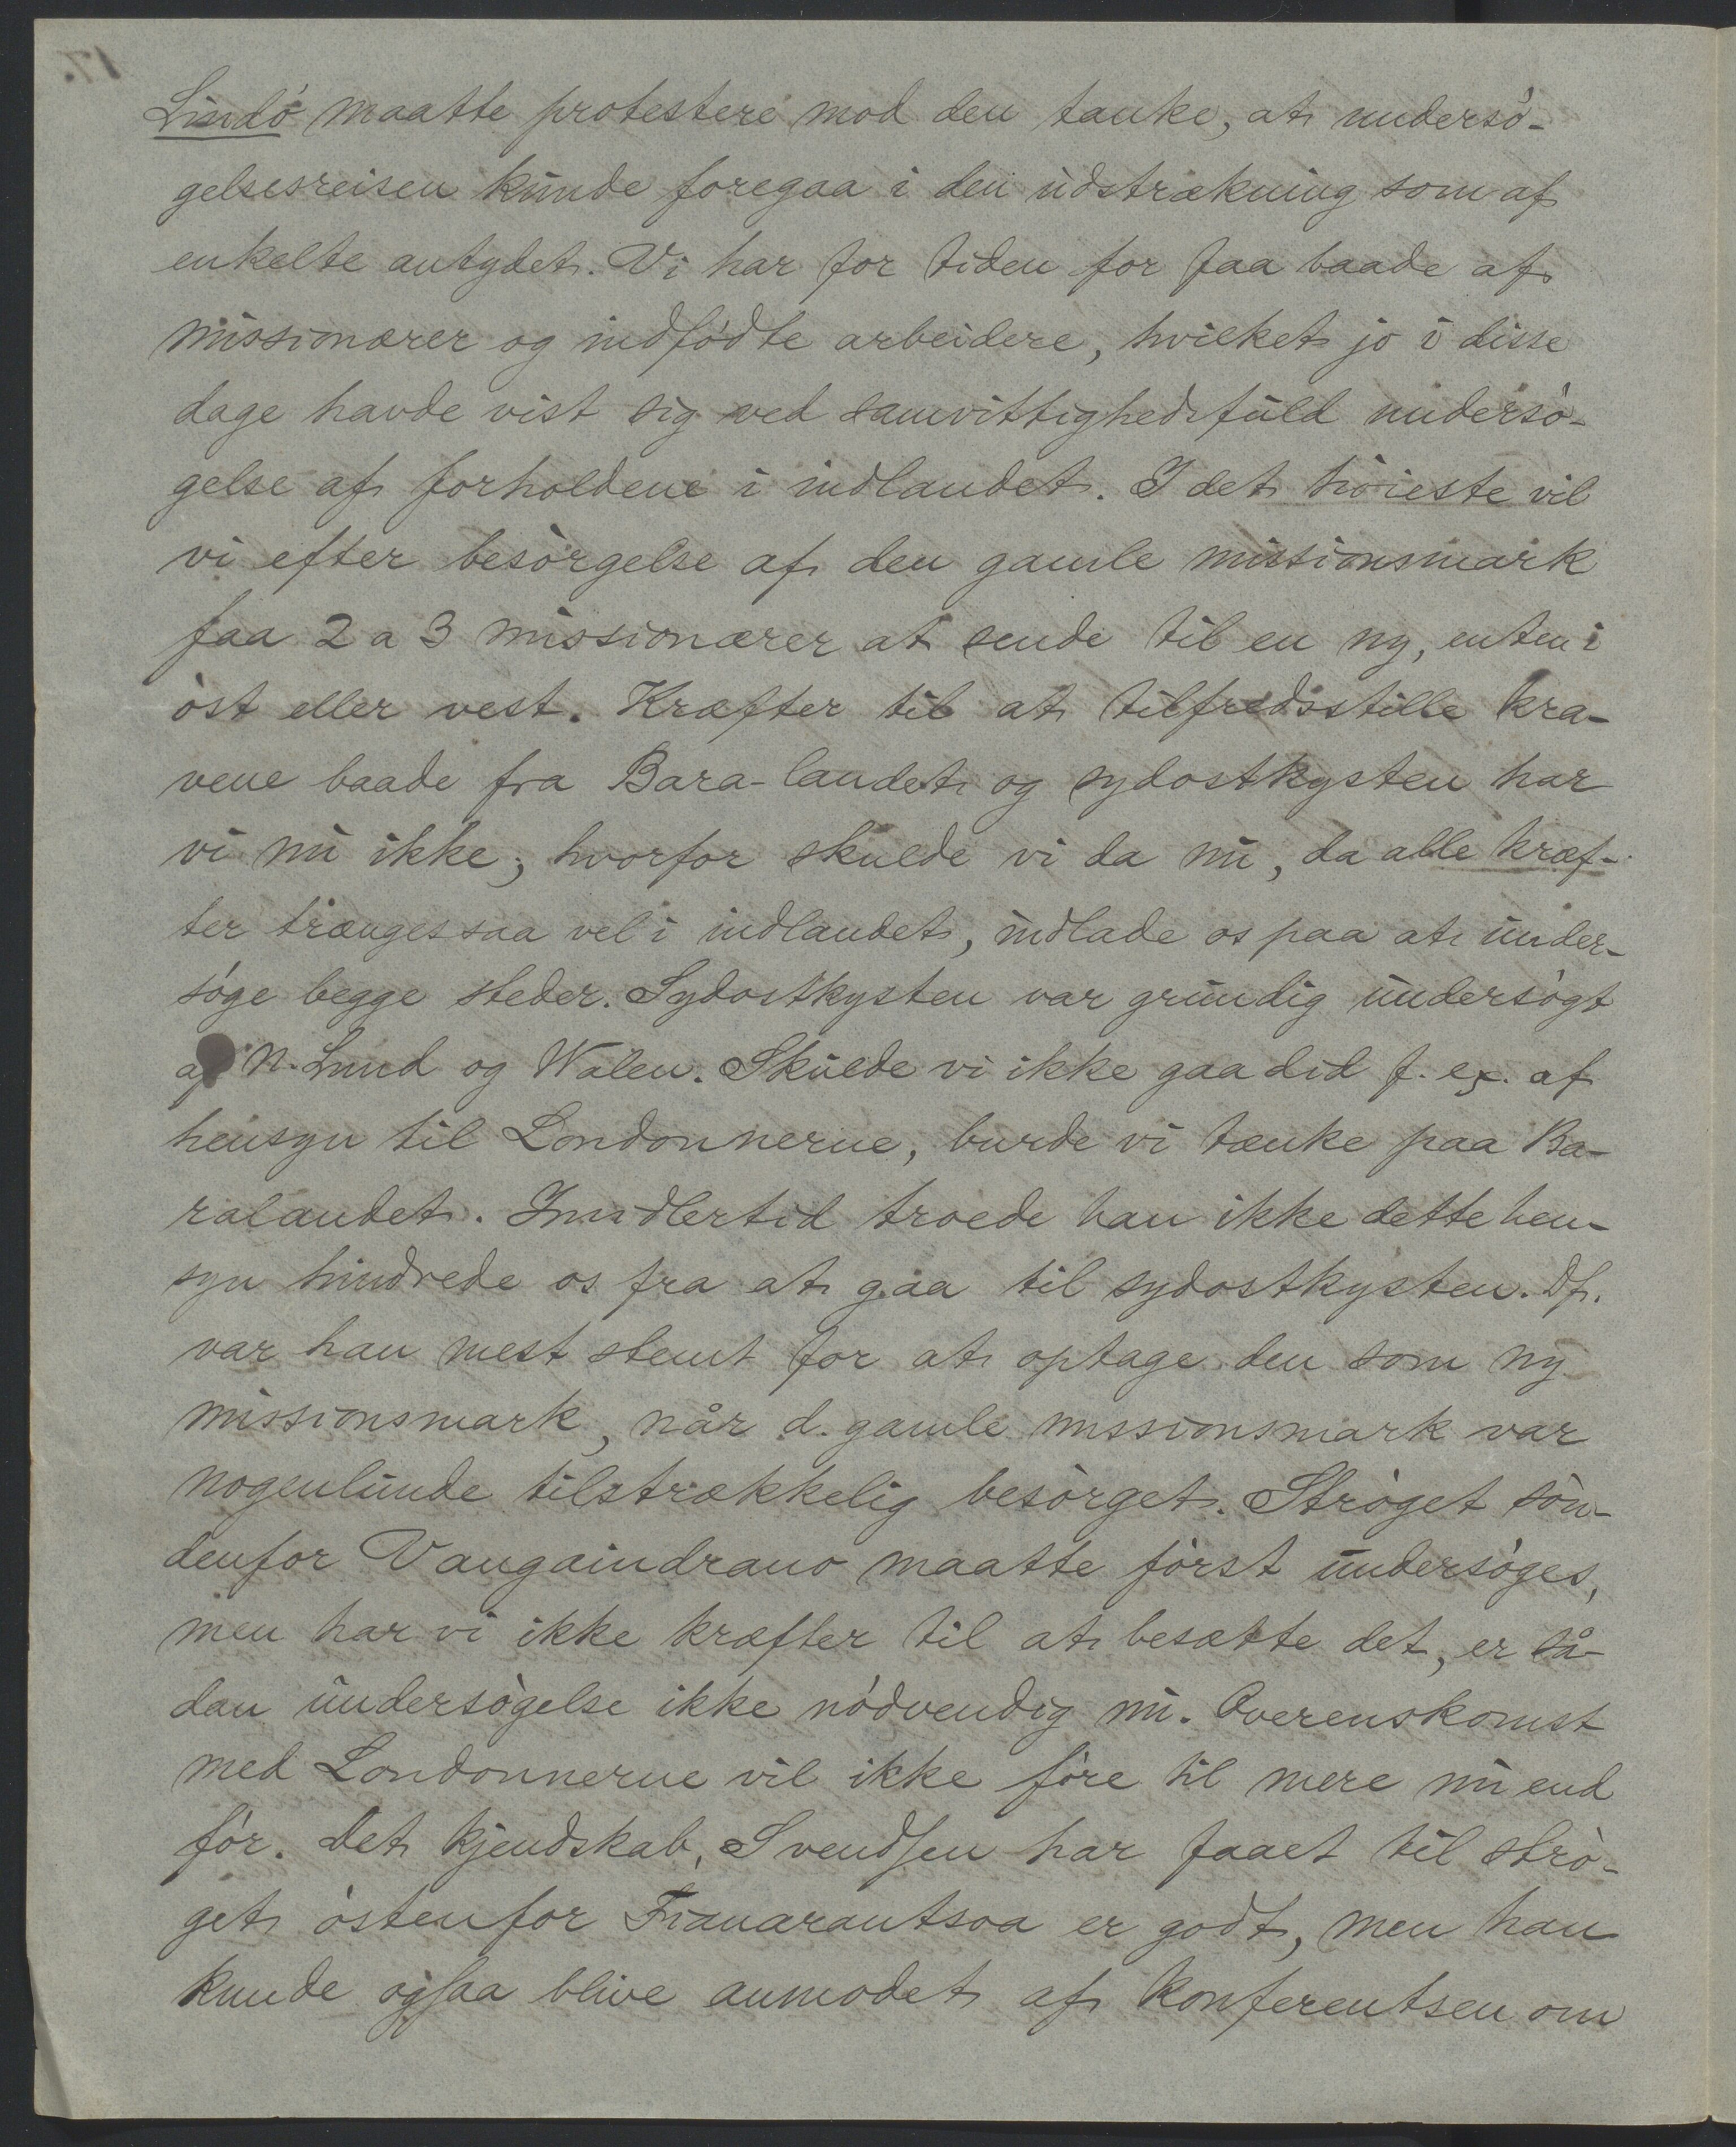 Lindö maatte protestere mod den tanke, at undersö-
gelsesreisen kunde foregaa i den udstrækning som af
enkelte antydet. Vi har for tiden for faa baade af
missionærer og indfödte arbeidere, hvilket jo i disse
dage havde vist sig ved samvittighedsfuld undersö-
gelse af forholdene i indlandet. I det höieste vil
vi efter besörgelse af den gamle missionsmark
faa 2 a 3 missionærer at sende til en ny, enten i
öst eller vest. Kræfter til at tilfredsstille kra-
vene baade fra Bara-landet og sydostkysten har
vi nu ikke; hvorfor skulde vi da nu, da alle kræf-
ter trænges saa vel i indlandet, indlade os paa at under-
söge begge steder. Sydostkysten var grundig undersögt
af N. Lund og Walen. Skulde vi ikke gaa did f. ex. af
hensyn til Londonnerne, burde vi tænke paa Ba-
ralandet. Imidlertid troede han ikke dette hen-
syn hindrede os fra at gaa til sydostkysten. Df.
var han mest stemt for at optage den som ny
missionsmark, når d. gamle missionsmark var
nogenlunde tilstrækkelig besörget. Ströget sön-
denfor Vangaindrano maatte först undersöges,
men har vi ikke kræfter til at besætte det, er så-
dan undersögelse ikke nödvendig nu. Overenskomst
med Londonnerne vil ikke före til mere nu end
för. Det kjendskab, Svendsen har faaet til strö-
get östenfor Fianarantsoa er godt, men han
kunde ogsaa blive anmodet af Konferentsen om
17.